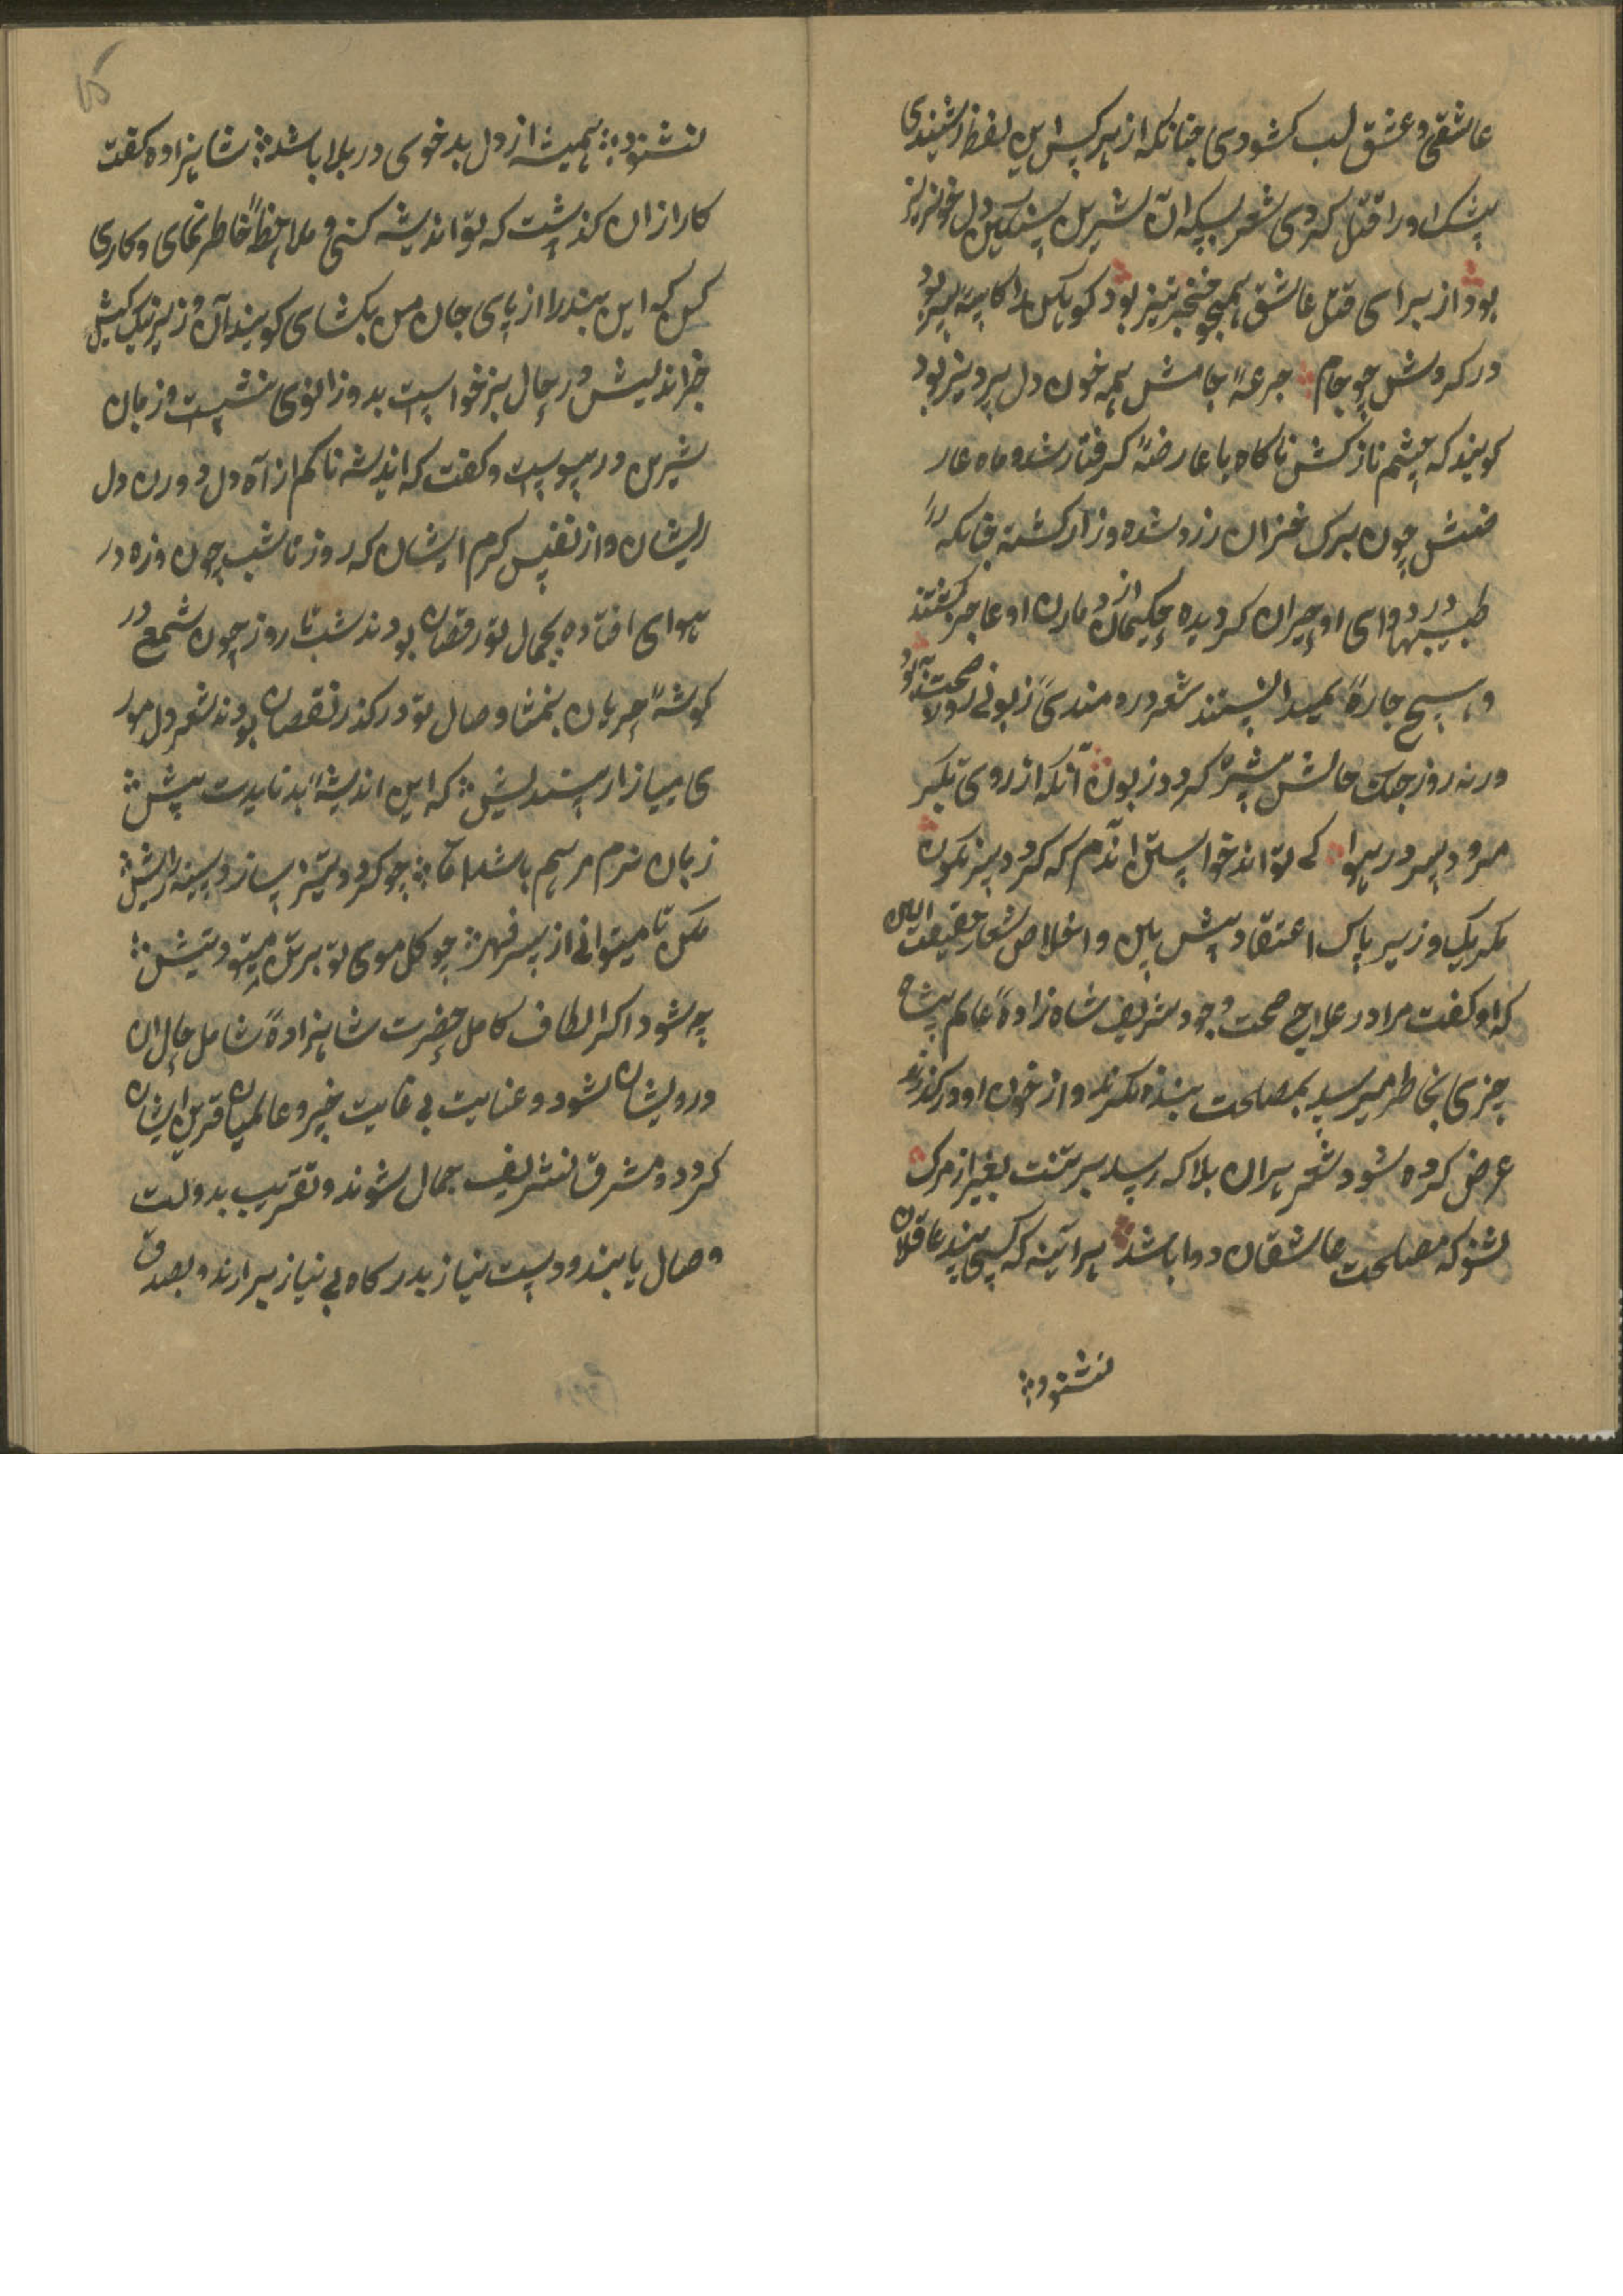 عاشقی و عشق لب کشودی چنانکه از هر کس این لفظ شنیدی
بیشک او را قتل کردی شعر بسکه آن شیرین سنکین دل خونریز
بود از برای قتل عاشق همچو خنجر تیز بود کو یکن را کاسهٔ سر بود
در کردش چو جام جرعهٔ جامش همه خون دل پرویز بود
کویند که چشم نازکش ناکاه با عارضهٔ کرفتار شد و ماه عار
ضش چون برک خزان زرد شده و زار کشته چنانکه
طبیبها در دوای او حیران کردیده حکیمان از درمان او عاجز کشتند
و هیچ چارهٔ نمیدانستند شعر دردمندی زبونی را صحت
ورنه روز جنک حالش پشهٔ کردد زبون آنکه از روی تکبر
مرود بر در هوا کی تواند خواستن اندم که کردد سرنکون
مکر یک وزیر پاک اعتقاد پیش بین و اخلاص شعار حقیقت این
که او کفت مرا در علاج صحت وجود شریف شاه زادهٔ عالم پناه
چیزی بخاطر میرسد بمصلحت بنده نکرند و از خون او درکذرند
عرض کرده شود شعر هران بلا که رسد بر تنت بغیر از مرک
بشنو که مصلحت عاشقان دوا باشد هرآینه که کسی پند عاقلان
نشنود
۱۵
نشنود همیشه از دل بدخوی در بلا باشد شاهزاده کفت
کار از ان کذشت که تو اندیشه کنی و ملاحظهٔ خاطر نمای و کاری
کن که این بند را از پای جان من بکشای کویند آن وزیر نیک کیش
خیر اندیش در حال برخواست بدو زانوی نشست و زبان
شیرین در پیوست و کفت که اندیشه ناکم از آه دل درون دل
ریشان و از نفس کرم ایشان که روز تا شب چون ذره در
هوای افتاده بجمال تو رقصان بودند شب تا روز چون شمع در
کوشهٔ حرمان بتمنا وصال تو در کذر نقصان بودند شعر دل مور
ی میازار سنددلیش که این اندیشهٔ بد نایدت پیش
زبان نرم مرهم باشد اما چو کردد تیز سازد سینه را ریش
مکن تا میتوانی از سر قهر چو کل موی تو بر تن میشود نیش
چه شود اکر الطاف کامل حضرت شاهزادهٔ شامل حال ان
درویشان شود و عنایت بی غایت خیر و عالمیان قرین ایشان
کردد و مشرق تشریف جمال شوند و تقریب بدولت
وصال یابند و دست نیاز بدرکاه بی نیاز برارند و بصدق